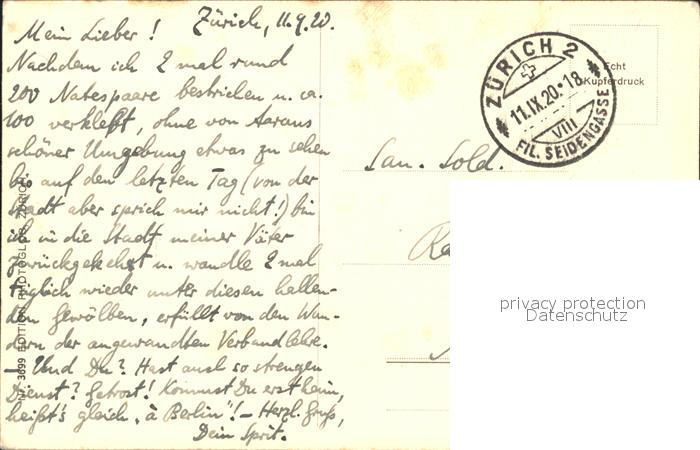 Zürich, 11.9.20.
Mein Lieber!
Nachdem ich 2 mal rund
200 Natespaare bestrichen u. ca.
100 verklebt, ohne von Aaraus
schöner Umgebung etwas zu sehen
bis auf den letzten Tag (von der
Stadt aber sprich mir nicht!) bin
ich in die Stadt meiner Väter
zurückgekehrt u. wandle 2 mal
täglich wieder unter diesen hallen-
den Gewölben, erfüllt von den Wun-
dern der angewandten Verbandlehre.
– Und Du? Hast auch so strengen
Dienst? Getrost! Kommst Du erst heim,
heißt's gleich „à Berlin"! – Herzl. Gruß,
Dein Sprit.
3699 EDITION PHOTOGLOB, ZÜRICH
ZÜRICH 2
11.IX.20.18
VIII
FIL. SEIDENGASSE
Echt
Kupferdruck
San. Sold.
privacy protection
Datenschutz